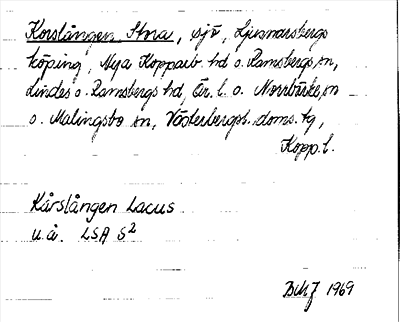 Korslången Stora, sjö, Ljusnarsbergs
köping, Nya Kopparb. hd o. Ramsbergs sn,
Lindes o. Ramsbergs hd, Ör. l. o. Norrbärke sn
o. Malingsbo sn, Västerbergsl. doms. tg,
Kopp. l.
Kårslången Lacus
u.å. LSA S²
1969